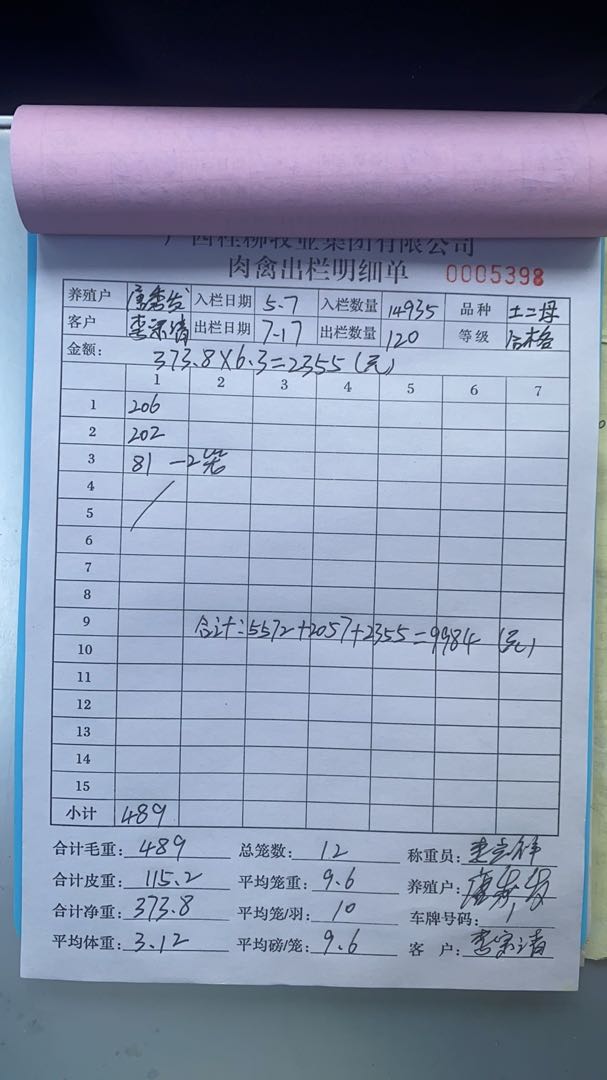 广西桂柳牧业集团有限公司
肉禽出栏明细单 0005398
养殖户 入栏日期 5.7 入栏数量 14935 品种 土二丹
客户 李宗清 出栏日期 7.17 出栏数量 120 等级 合格
金额: 373.8×6.3=2355(元)
1 2 3 4 5 6 7
1 206
2 202
3 81 —2笼
4
5
6
7
8
9
合计:5572+2057+2355=9984 (元)
10
11
12
13
14
15
小计 489
合计毛重: 489 总笼数: 12 称重员:
合计皮重: 115.2 平均笼重: 9.6 养殖户:
合计净重: 373.8 平均笼/羽: 10 车牌号码: /
平均体重: 3.12 平均磅/笼: 9.6 客 户: 李宗清